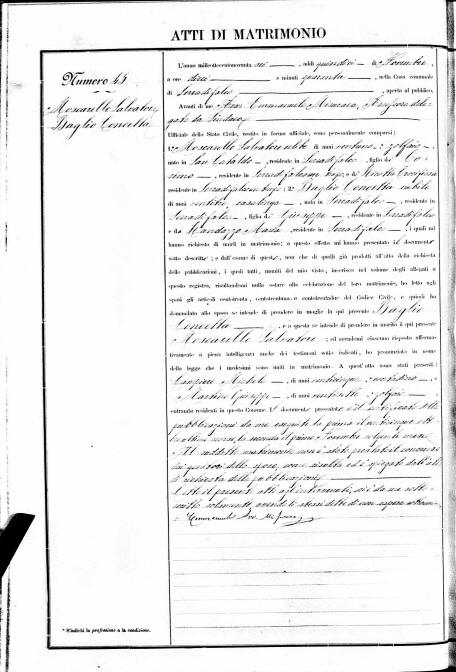 ATTI DI MATRIMONIO
Numero 45
Moscarello Salvatore
Baglio Concetta
L'anno milleottocentonovanta sei, addì quindici di Novembre,
a ore dieci e minuti quaranta, nella Casa comunale
di Serradifalco, aperta al pubblico,
Avanti di me Assessore dele-
gato dal Sindaco
Uffiziale dello Stato Civile, vestito in forma ufficiale, sono personalmente comparsi:
1° Moscarello Salvatore celibe, di anni ventuno, zolfaio,
nato in San Cataldo, residente in Serradifalco, figlio di Co-
simo, residente in Serradifalco e di
residente in Serradifalco 2° Baglio Concetta nubile
di anni casalinga, nata in Serradifalco, residente in
Serradifalco, figlia di Giuseppe, residente in Serradifalco
e da Maria, residente in Serradifalco, i quali mi
hanno richiesto di unirli in matrimonio; a questo effetto mi hanno presentato il documento
sotto descritto; e dall'esame di questo, non che di quelli già prodotti all'atto della richiesta
delle pubblicazioni, i quali tutti, muniti del mio visto, inserisco nel volume degli allegati a
questo registro, risultandomi nulla ostare alla celebrazione del loro matrimonio, ho letto agli
sposi gli articoli centotrenta, centotrentuno e centotrentadue del Codice Civile, e quindi ho
domandato allo sposo se intende di prendere in moglie la qui presente Baglio
Concetta, e a questa se intende di prendere in marito il qui presente
Moscarello Salvatore; ed avendomi ciascuno risposto afferma-
tivamente a piena intelligenza anche dei testimoni sotto indicati, ho pronunziato in nome
della legge che i medesimi sono uniti in matrimonio. A quest'atto sono stati presenti:
Michele, di anni venticinque, contadino,
e Martino Giuseppe, di anni ventisette, zolfaio,
entrambi residenti in questo Comune. Il documento presentato è il certificato delle
pubblicazioni da me eseguite la prima il venticinque ott-
la seconda il primo Novembre
Al suddetto matrimonio non è stato prestato il consenso
dai genitori dello sposo, come risulta dall'atto
di richiesta delle pubblicazioni
Letto il presente atto agli intervenuti, si è da me sotto-
scritto solamente, avendo detto di non sapere
* S'indichi la professione o la condizione.